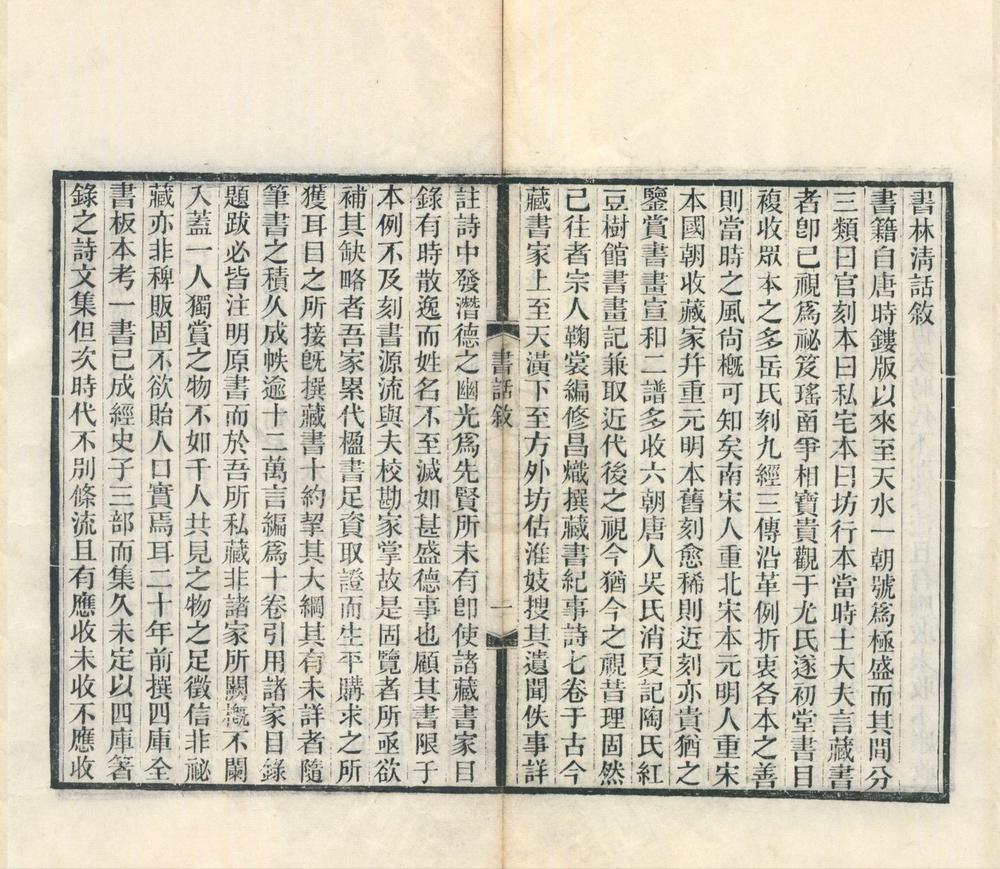 書林清話敘
書籍自唐時鏤版以來至天水一朝號爲極盛而其間分
三類曰官刻本曰私宅本曰坊行本當時士大夫言藏書
者卽已視爲祕笈瑤函爭相寶貴觀于尤氏遂初堂書目
複收眾本之多岳氏刻九經三傳沿革例折衷各本之善
則當時之風尙槪可知矣南宋人重北宋本元明人重宋
本國朝收藏家幷重元明本舊刻愈稀則近刻亦貴猶之
鑒賞書畫宣和二譜多收六朝唐人吳氏消夏記陶氏紅
豆樹館書畫記兼取近代後之視今猶今之視昔理固然
已往者宗人鞠裳編修昌熾撰藏書紀事詩七卷于古今
藏書家上至天潢下至方外坊估淮妓搜其遺聞佚事詳
書話敘
一
註詩中發潛德之幽光爲先賢所未有卽使諸藏書家目
錄有時散逸而姓名不至滅如甚盛德事也顧其書限于
本例不及刻書源流與夫校勘家掌故是固覽者所亟欲
補其缺略者吾家累代楹書足資取證而生平購求之所
獲耳目之所接旣撰藏書十約挈其大綱其有未詳者隨
筆書之積久成帙逾十二萬言編爲十卷引用諸家目錄
題跋必皆注明原書而於吾所私藏非諸家所闕槪不闌
入蓋一人獨賞之物不如千人共見之物之足徵信非祕
藏亦非稗販固不欲貽人口實焉耳二十年前撰四庫全
書板本考一書已成經史子三部而集久未定以四庫箸
錄之詩文集但次時代不別條流且有應收未收不應收